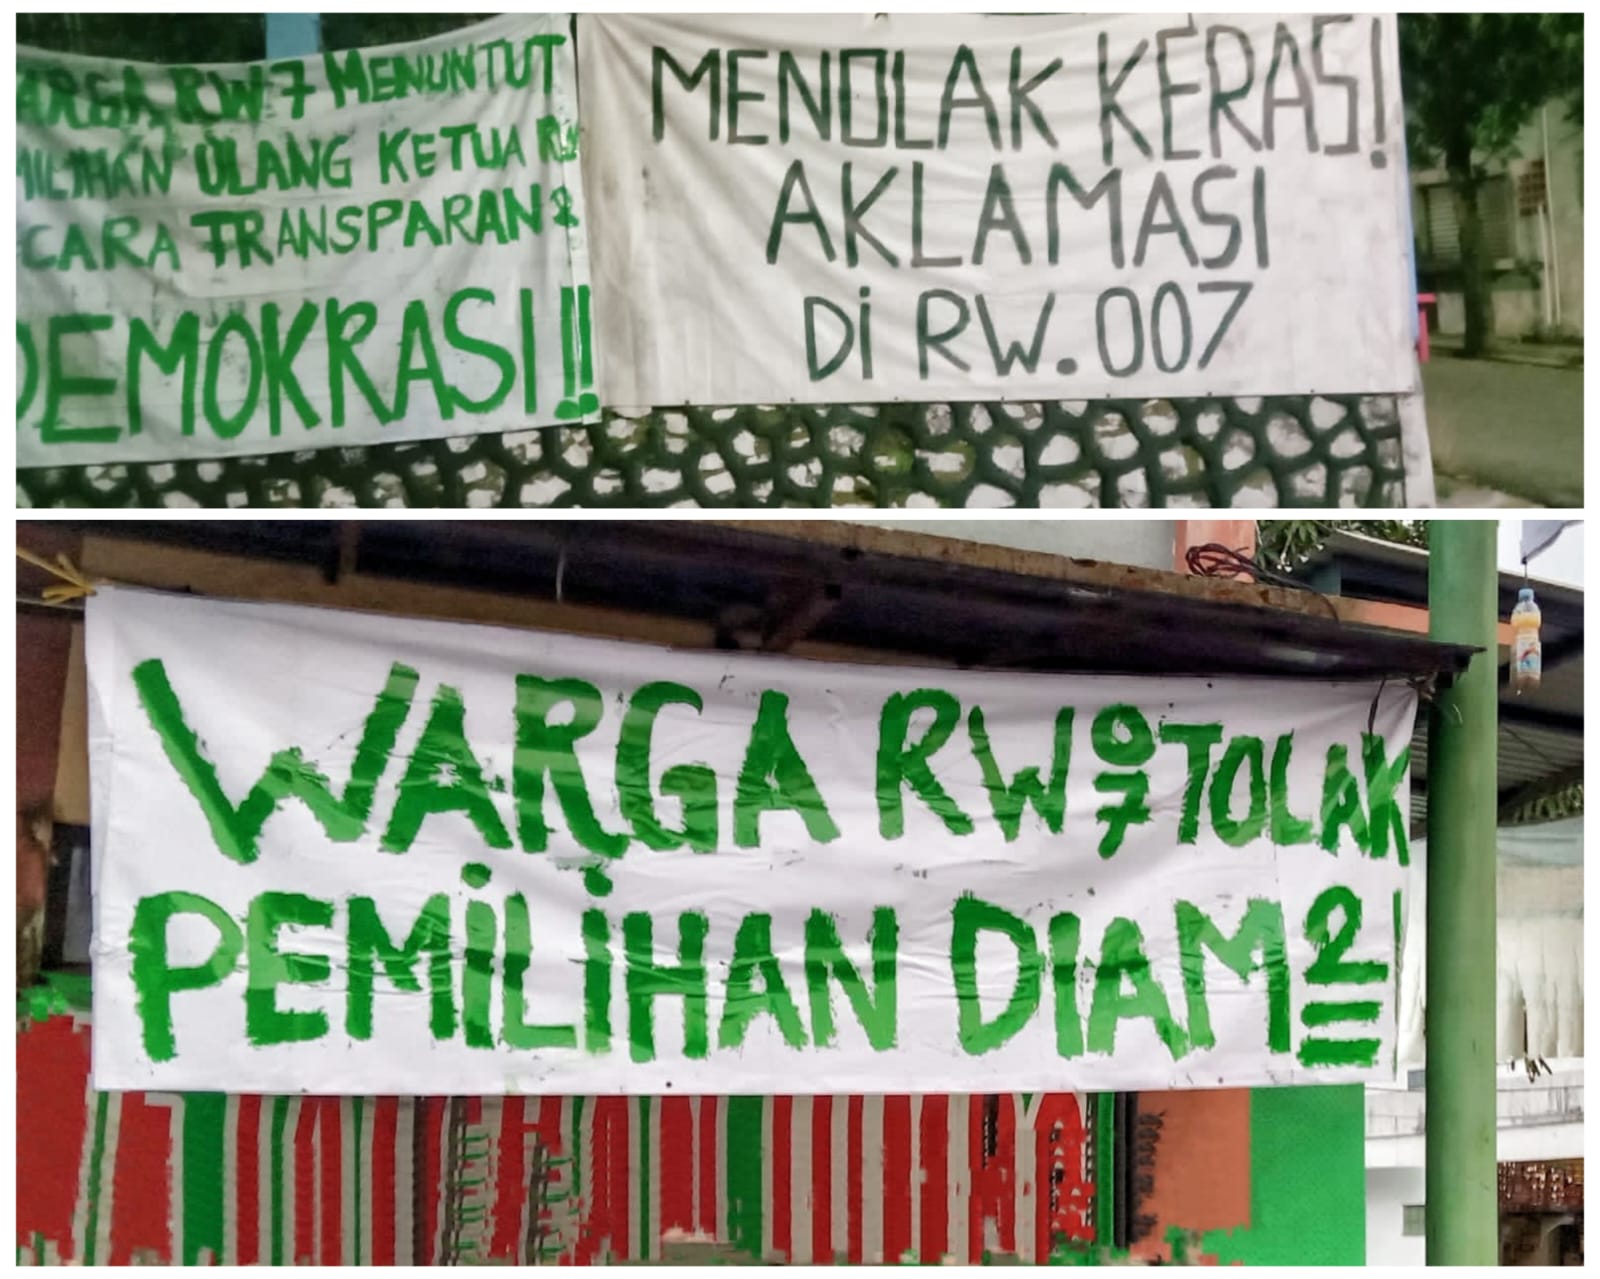 ARGA RW 7 MENUNTUT
MILIHAN ULANG KETUA RW
CARA TRANSPARAN &
DEMOKRASI!!
MENOLAK KERAS!
AKLAMASI
Di RW. 007
WARGA RW 07 TOLAK
PEMiLiHAN DIAM2